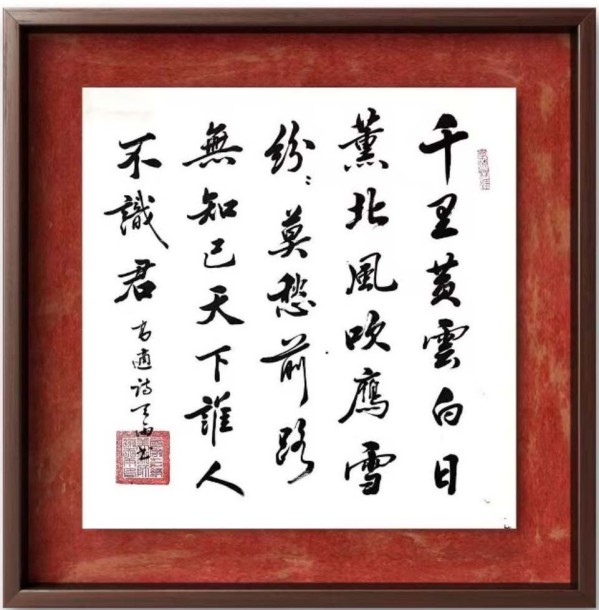 千里黄雲白日
薰北風吹鷹雪
紛〻莫愁前路
無知己天下誰人
不識君 高適詩